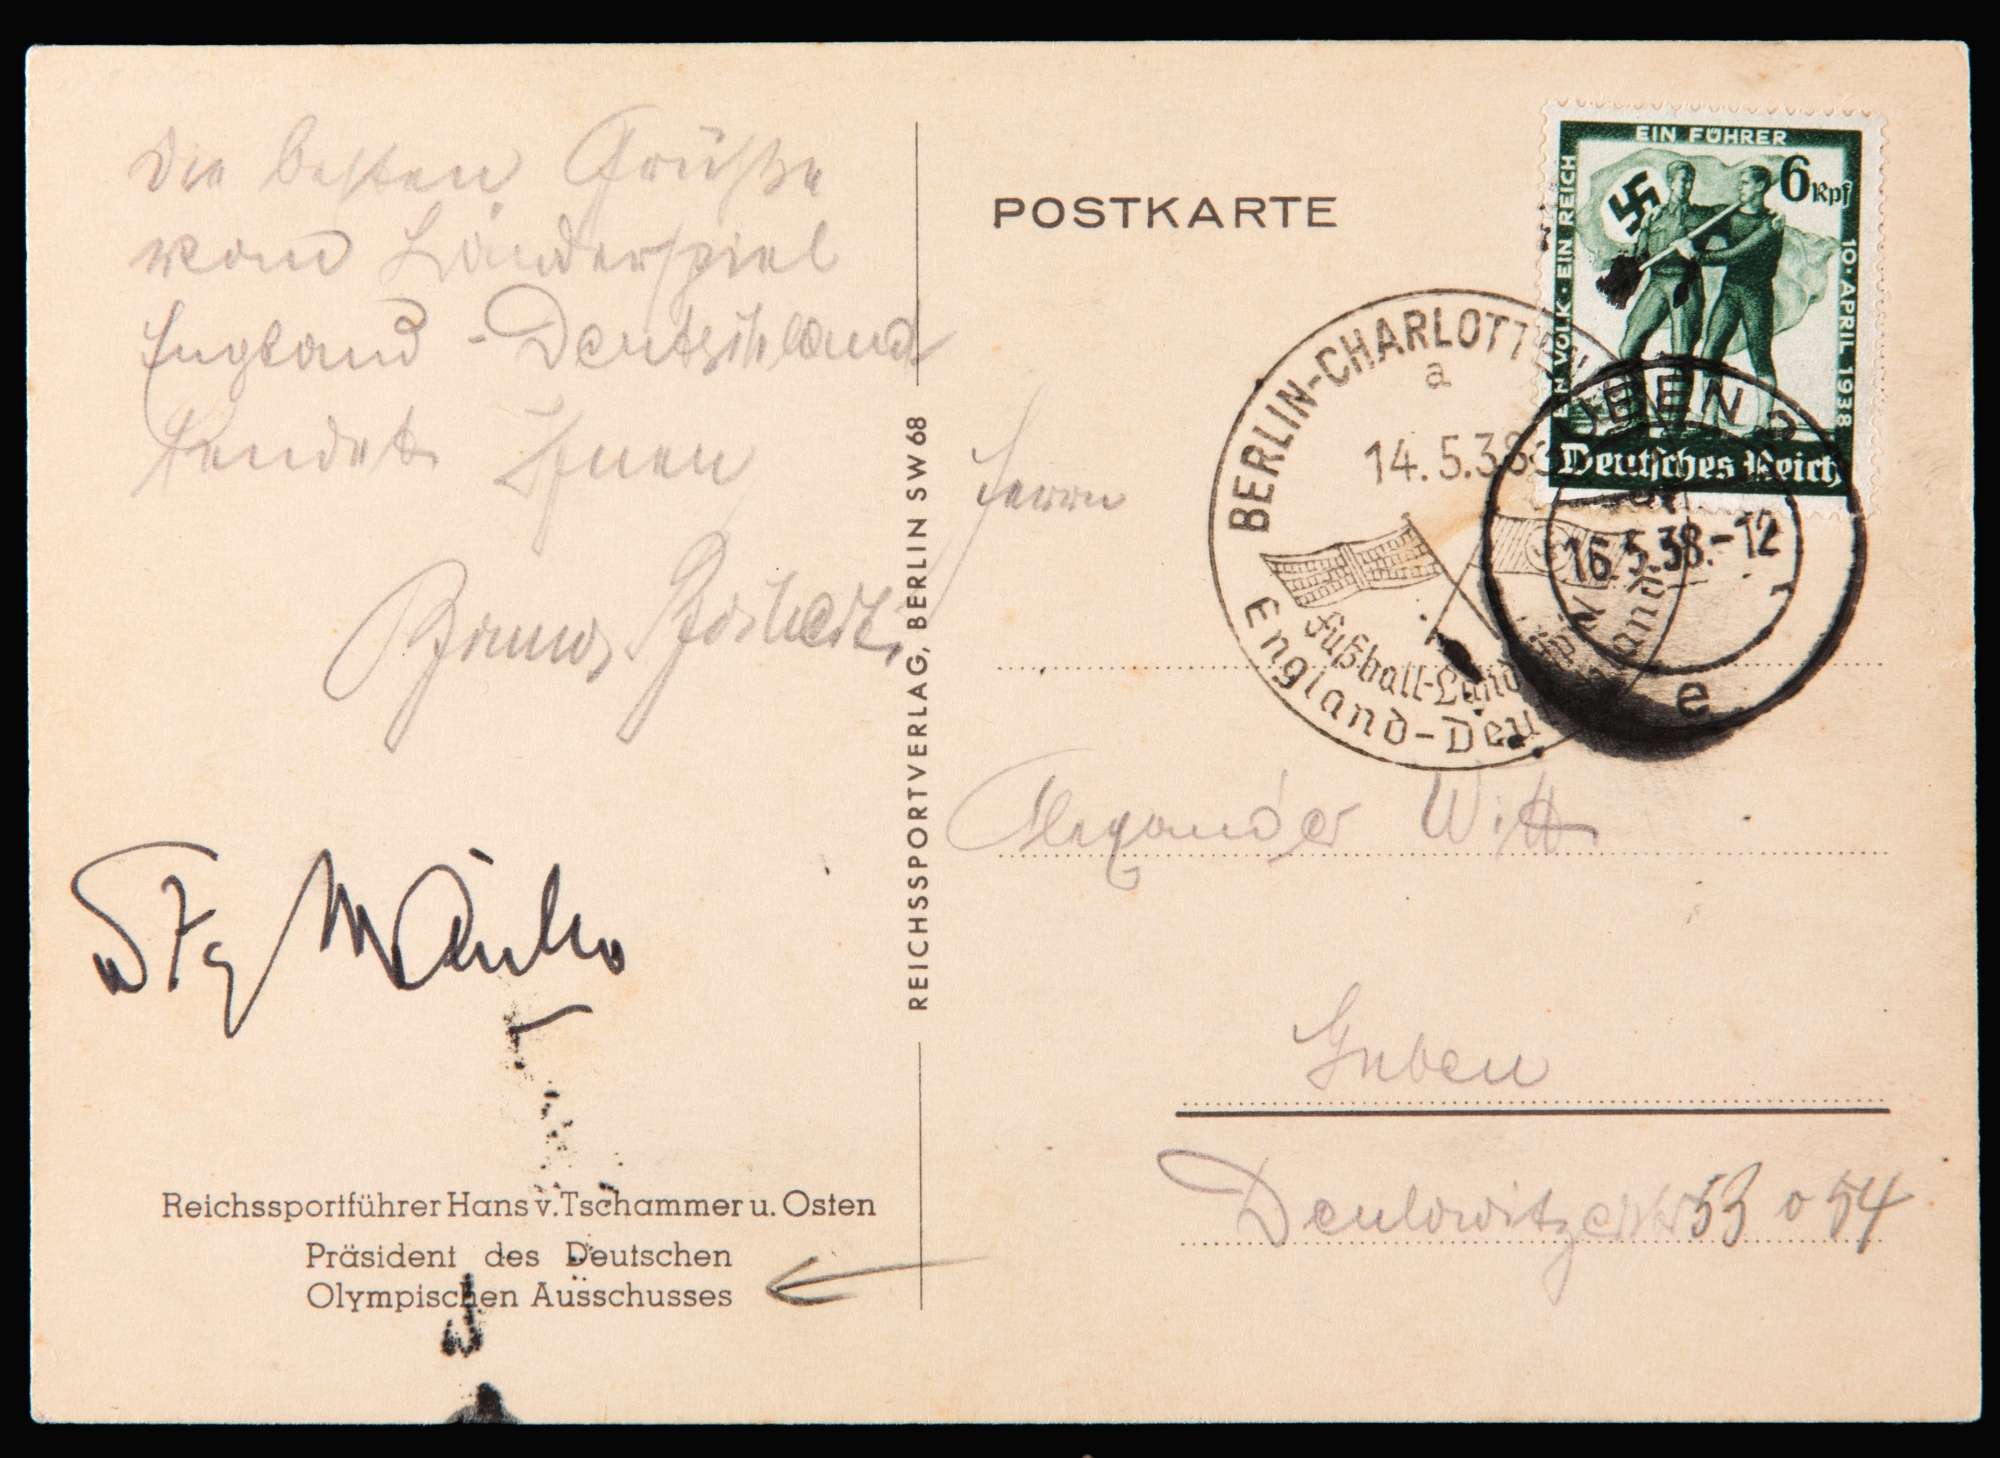 Die besten Grüße
vom Länderspiel
England - Deutschland
sendet Ihnen
Reichssportführer Hans v. Tschammer u. Osten
Präsident des Deutschen
Olympischen Ausschusses
REICHSSPORTVERLAG, BERLIN SW 68
POSTKARTE
EIN VOLK · EIN REICH
EIN FÜHRER
10·APRIL 1938
6 Rpf
Deutsches Reich
BERLIN-CHARLOTT
a
14.5.38
Fußball-Länderspiel
England-Deu land
GUBEN 2
16.5.38.-12
e
Herrn
Alexander Witt
Guben
53 o 54